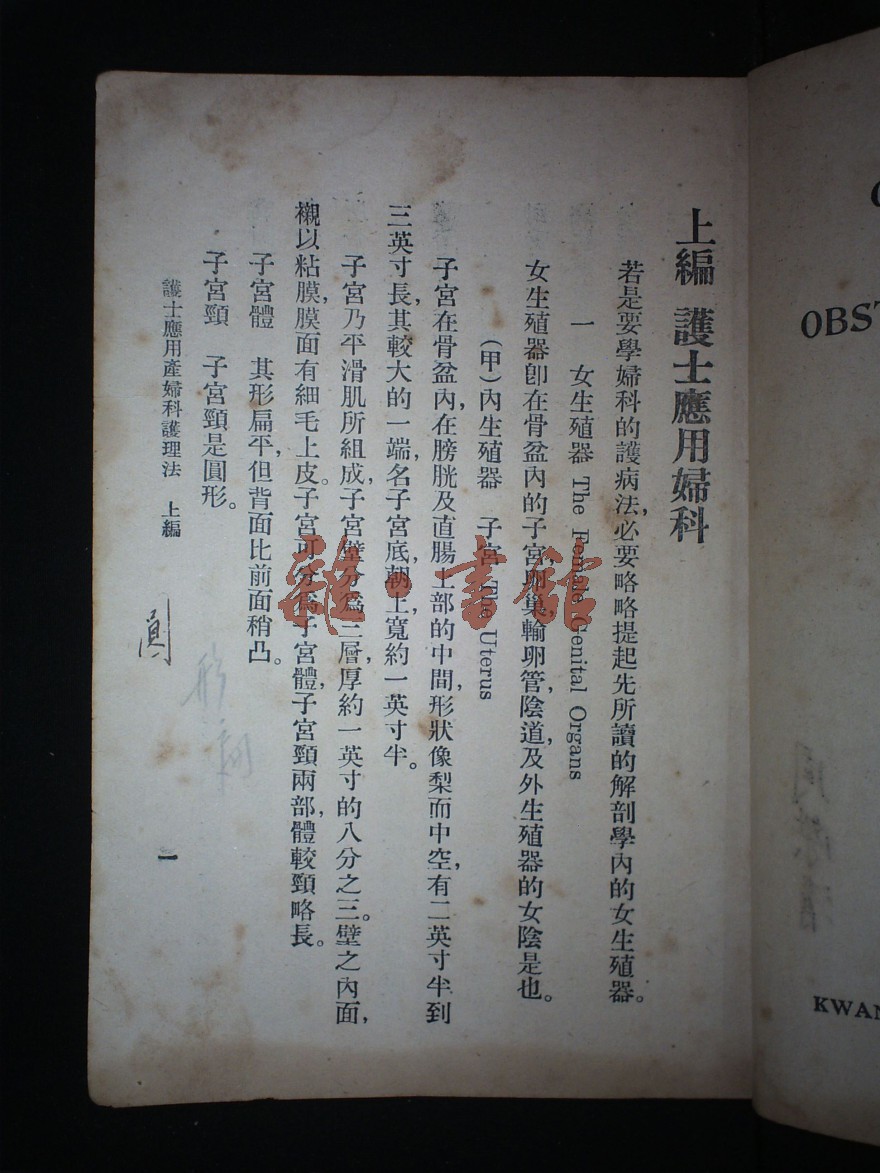 上編 護士應用婦科
若是要學婦科的護病法,必要略略提起先所讀的解剖學內的女生殖器。
一 女生殖器 The Female Genital Organs
女生殖器卽在骨盆內的子宮,卵巢,輸卵管,陰道,及外生殖器的女陰是也。
(甲)內生殖器 子宮 The Uterus
子宮在骨盆內,在膀胱及直腸上部的中間,形狀像梨而中空,有二英寸半到
三英寸長,其較大的一端,名子宮底,朝上,寬約一英寸半。
子宮乃平滑肌所組成,子宮壁分爲三層,厚約一英寸的八分之三。壁之內面,
襯以粘膜,膜面有細毛上皮。子宮可分爲子宮體,子宮頸兩部,體較頸略長。
子宮體 其形扁平,但背面比前面稍凸。
子宮頸 子宮頸是圓形。
護士應用產婦科護理法 上編
一
形
雜·書館
OBST
KWAN